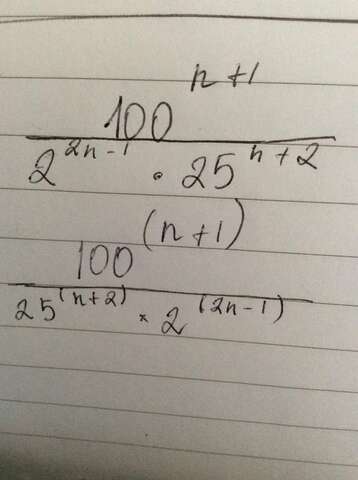 100^{n+1}
2^{2n-1} · 25^{n+2}
100^{(n+1)}
25^{(n+2)} × 2^{(2n-1)}